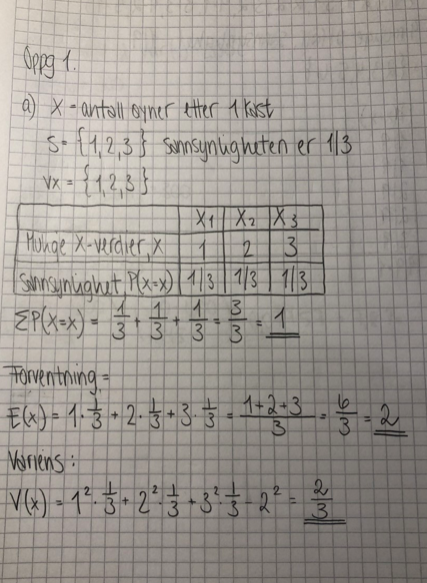 Oppg 1.
a) X = antall øyner etter 1 kast
S = {1,2,3} Sannsynligheten er 1/3
Vx = {1,2,3}
X1 X2 X3
Mulige X-verdier, x 1 2 3
Sannsynlighet, P(X=x) 1/3 1/3 1/3
ΣP(X=x) = 1/3 + 1/3 + 1/3 = 3/3 = 1
Forventning =
E(x) = 1·1/3 + 2·1/3 + 3·1/3 = (1+2+3)/3 = 6/3 = 2
Variens:
V(x) = 1²·1/3 + 2²·1/3 + 3²·1/3 - 2² = 2/3